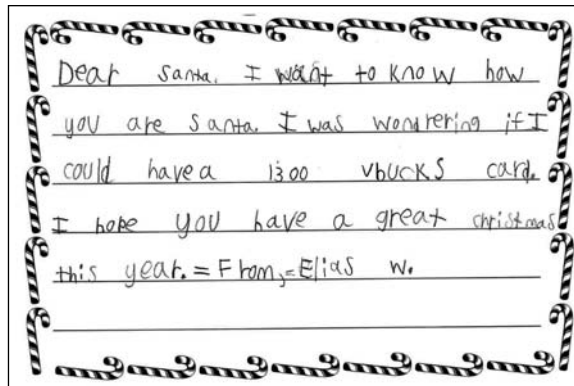 Dear santa. I want to know how
you are santa. I was wondrering if I
could have a 1300 vbucks card.
I hope you have a great christmas
this year. = From, = Elias w.